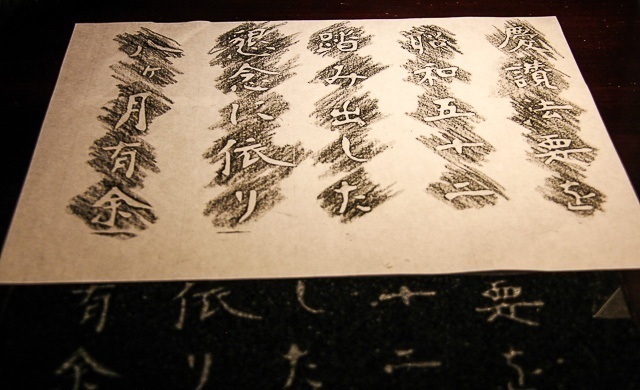 慶讃法要を
昭和五十二
踏み出した
退念に依り
八ヶ月有余
要を
十二
した
依り
有余